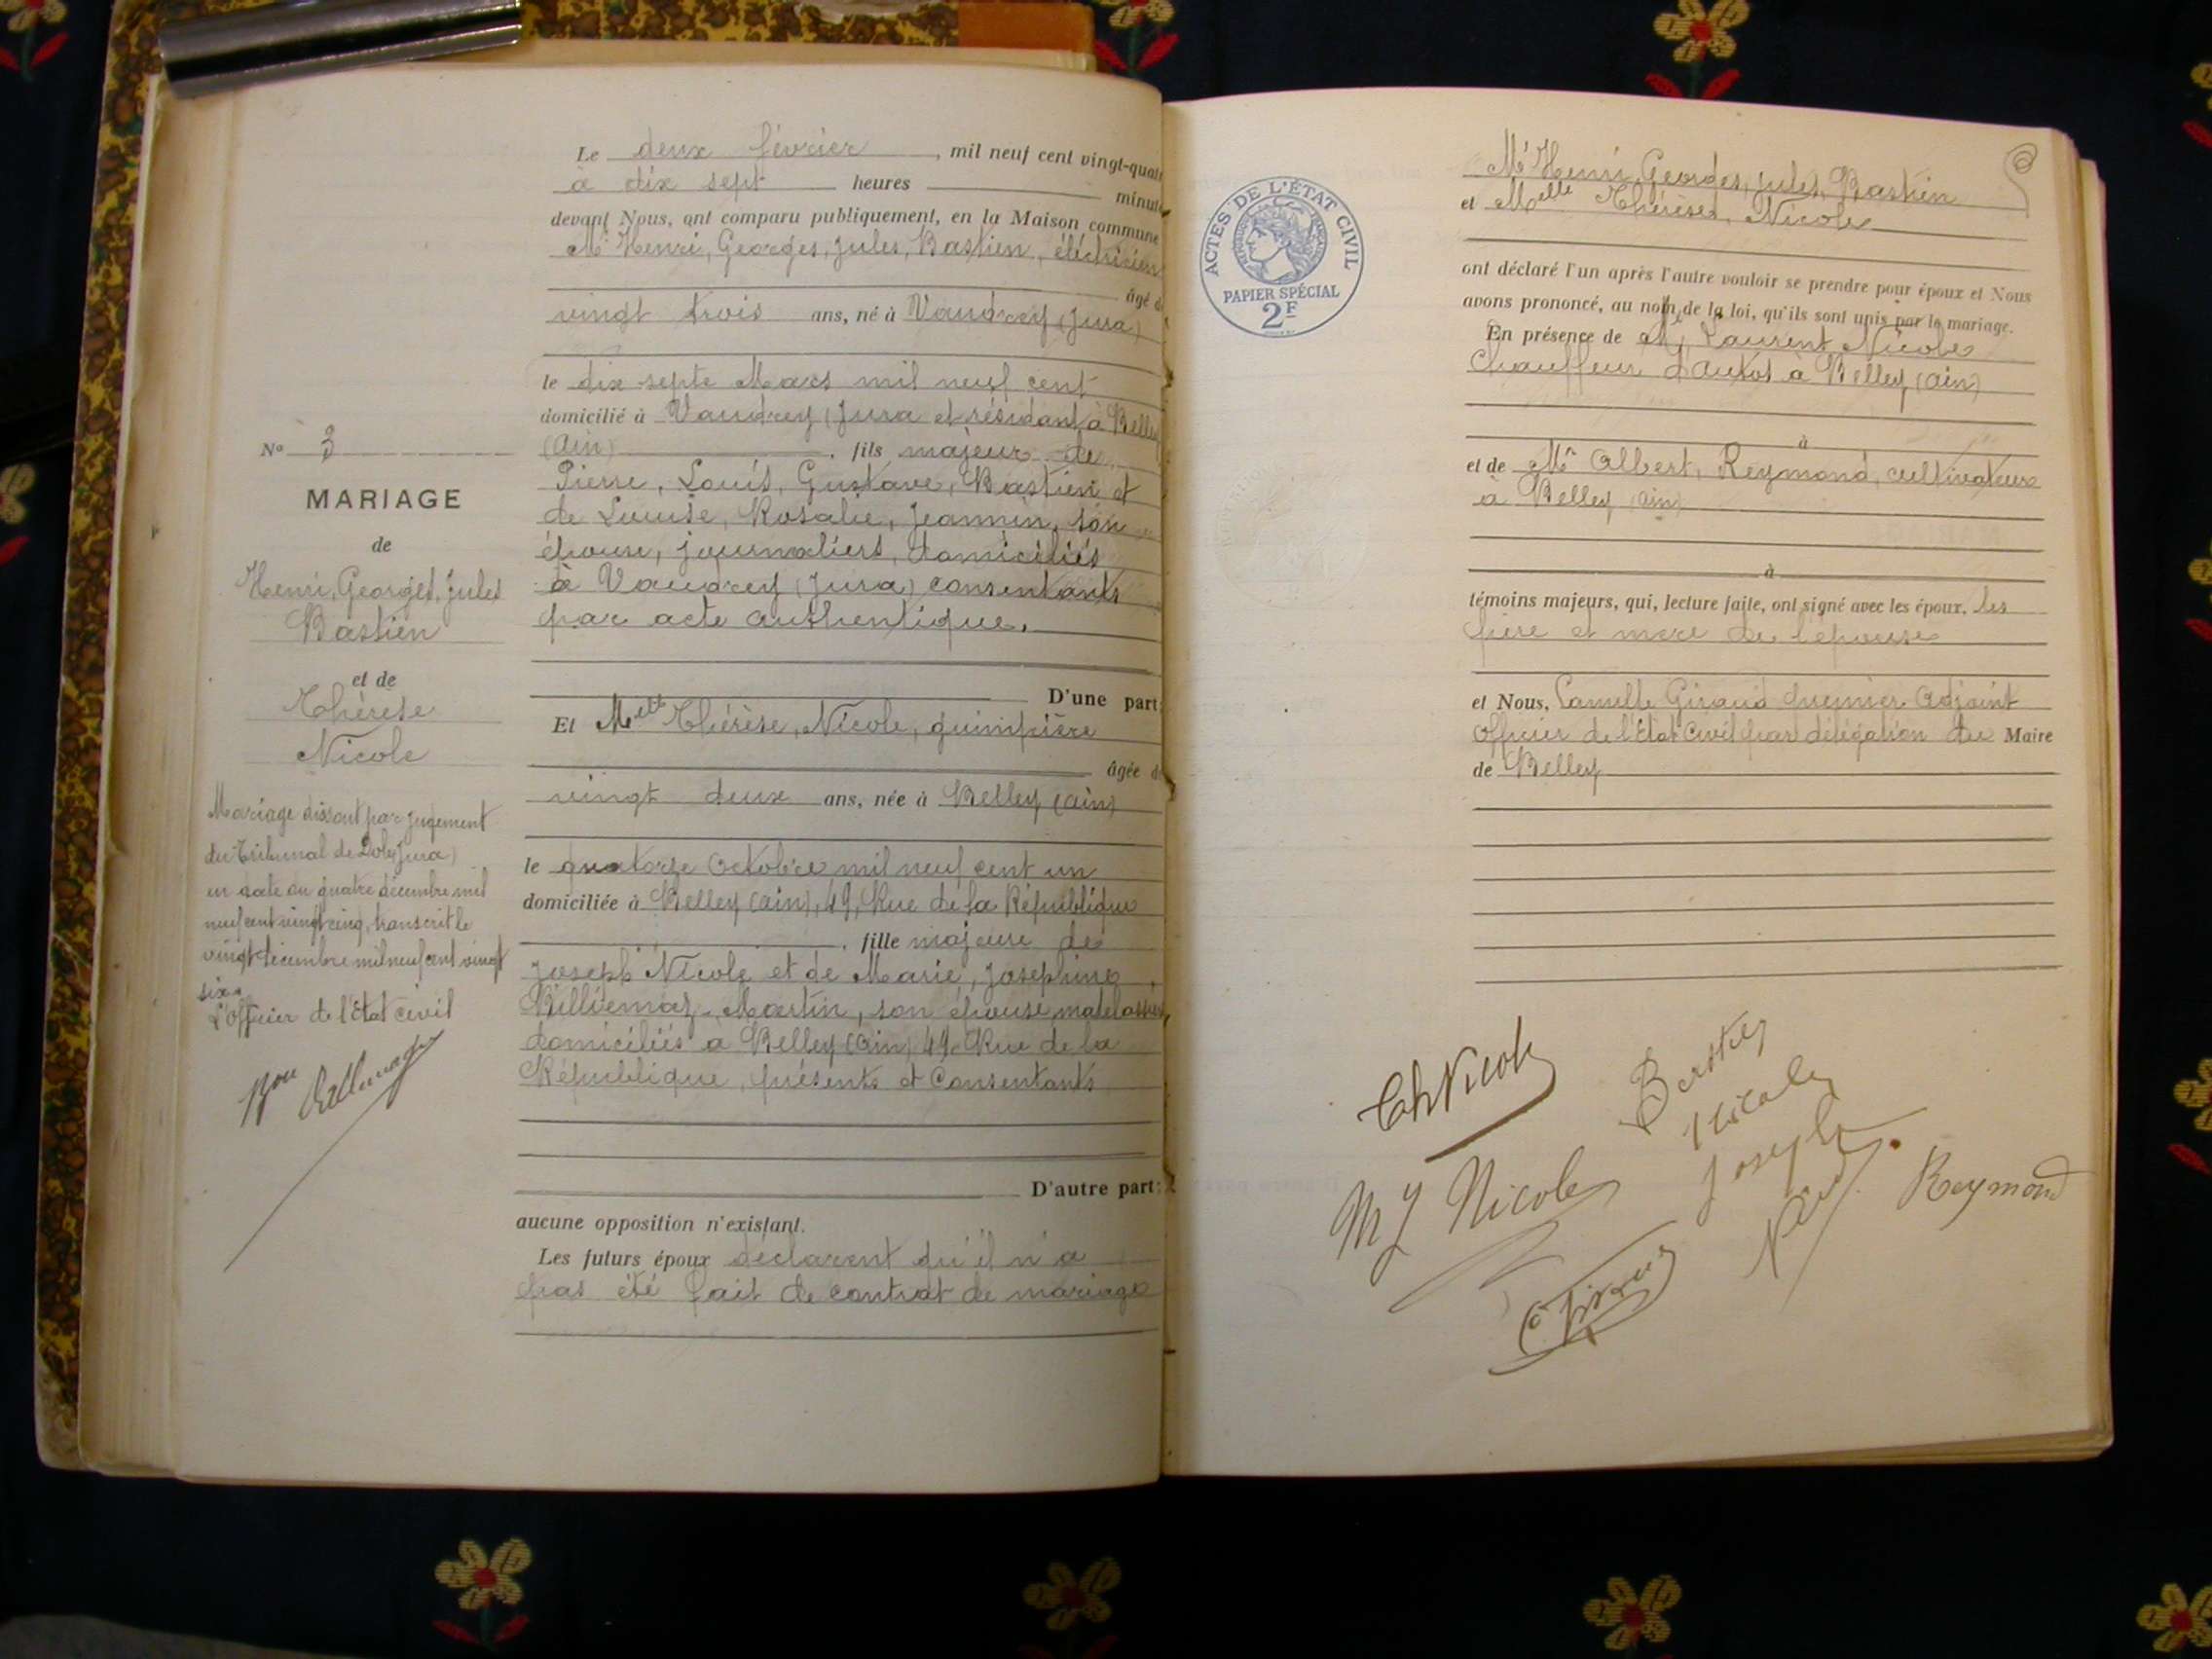 Le deux février, mil neuf cent vingt-quatr
à dix sept heures minute
devant Nous, ont comparu publiquement, en la Maison commune
Mr Henri, Georges, Jules, Bastien, éléctricien
âgé d
vingt trois ans, né à Vaudrey (Jura)
le dix septe Mars mil neuf cent
domicilié à Vaudrey (Jura et résidant à Belley
(Ain), fils majeur de
Pierre, Louis, Gustave, Bastien et
de Louise, Rosalie, Jeannin, son
épouse, journaliers, domiciliés
à Vaudrey (Jura) consentants
par acte authentique.
D'une part;
Et Melle Thérèse, Nicole, guimpière
âgée d
vingt deux ans, née à Belley (Ain)
le quatorze Octobre mil neuf cent un
domiciliée à Belley (Ain), 49, Rue de la République
, fille majeure de
Joseph Nicole et de Marie, Josephine
Billiemaz-Martin, son épouse, matelassiers
domiciliés à Belley (Ain) 49 Rue de la
République, présents et Consentants
D'autre part;
aucune opposition n'existant.
Les futurs époux déclarent qu'il n'a
pas été fait de contrat de mariage
No 3
MARIAGE
de
Henri, Georges, Jules
Bastien
et de
Thérèse
Nicole
Mariage dissout par jugement
du Tribunal de Dole (Jura)
en date du quatre décembre mil
neuf cent vingt cinq, transcrit le
vingt décembre mil neuf cent vingt
six.
L'Officier de l'Etat civil
Mr Henri, Georges, Jules, Bastien
et Melle Thérèse, Nicole
ont déclaré l'un après l'autre vouloir se prendre pour époux et Nous
avons prononcé, au nom de la loi, qu'ils sont unis par le mariage.
En présence de Laurent Nicole
Chauffeur d'autos à Belley (Ain)
à
et de Mr Albert, Reymond, cultivateur
à Belley (Ain)
à
témoins majeurs, qui, lecture faite, ont signé avec les époux, les
père et mère de l'épouse
et Nous, Camille Giraud premier Adjoint
Officier de l'Etat Civil par délégation du Maire
de Belley
ACTES DE L'ÉTAT CIVIL
RÉPUBLIQUE FRANÇAISE
PAPIER SPÉCIAL
2F
Th Nicole
Bastien
Nicole
Joseph
M J Nicole
Reymond